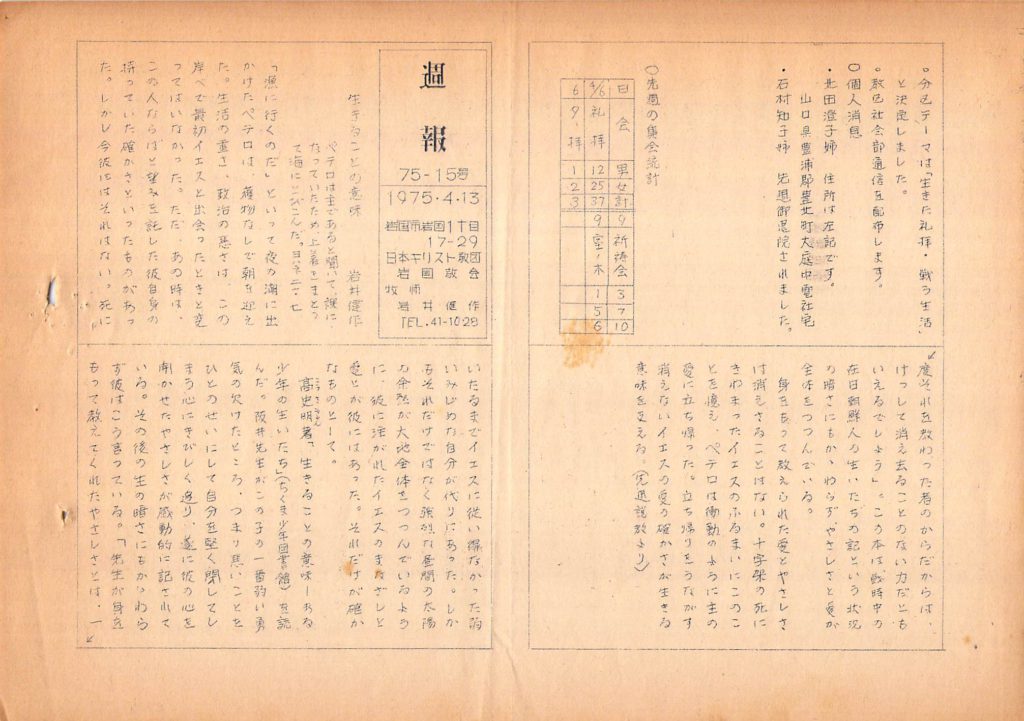 週報
'75-15号
1975.4.13
岩国市岩国1丁目
17-29
日本キリスト教団
岩国教会
牧師
岩井健作
TEL.41-1028
生きることの意味　岩井健作
ペテロは主であると聞いて、裸に
なっていたため上着をまとっ
て海にとびこんだ。ヨハネ二一・七
「漁に行くのだ」といって夜の湖に出
かけたペテロは、獲物なしで朝を迎え
た。生活の重さ、政治の悪さは、この
岸べで最初イエスと出会ったときと変
ってはいなかった。ただ、あの時は、
この人ならばと望みを託した彼自身の
持っていた確かさといったものがあっ
た。しかし今彼にはそれはない。死に
いたるまでイエスに従い得なかった弱
いみじめな自分が代りにあった。しか
しそれだけではなく強烈な昼間の太陽
の余熱が大地全体をつつんでいるよう
に、彼に注がれたイエスのまなざしと
愛とが彼にはあった。それだけが確か
なものとして。
高史明著「生きることの意味ーある
少年の生いたち」(ちくま少年図書館)を読
んだ。阪井先生がこの子の一番弱い勇
気の欠けたところ、つまり悪いことを
ひとのせいにして自分を堅く閉してし
まう心にきびしく迫り、遂に彼の心を
開かせたやさしさが感動的に記されて
いる。その後の生の暗さにもかゝわら
ず彼はこう言っている。「先生が身を
もって教えてくれたやさしさとは、一
度それを教わった者のからだからは、
けっして消え去ることのない力だとも
いえるでしょう」。この本は戦時中の
在日朝鮮人の生いたちの記という状況
の暗さにもかゝわらずやさしさと愛が
全体をつつんでいる。
身をもって教えられた愛とやさしさ
は消えさることはない。十字架の死に
きわまったイエスのふるまいにこのこ
とを憶え、ペテロは衝動のように主の
愛に立ち帰った。立ち帰りをうながす
消えないイエスの愛の確かさが生きる
意味を支える。(先週説教より)
○分区テーマは「生きた礼拝・戦う生活」
と決定しました。
○教区社会部通信を配布します。
○個人消息
・北田澄子姉　住所は左記です。
山口県豊浦郡豊北町大庭中電社宅
・石村知子姉　先週御退院されました。
○先週の集会統計
日 会 男 女 計
4/6 礼拝 12 25 37
6 夕・拝 1 2 3
9 祈祷会 3 7 10
9 室ノ木 1 5 6